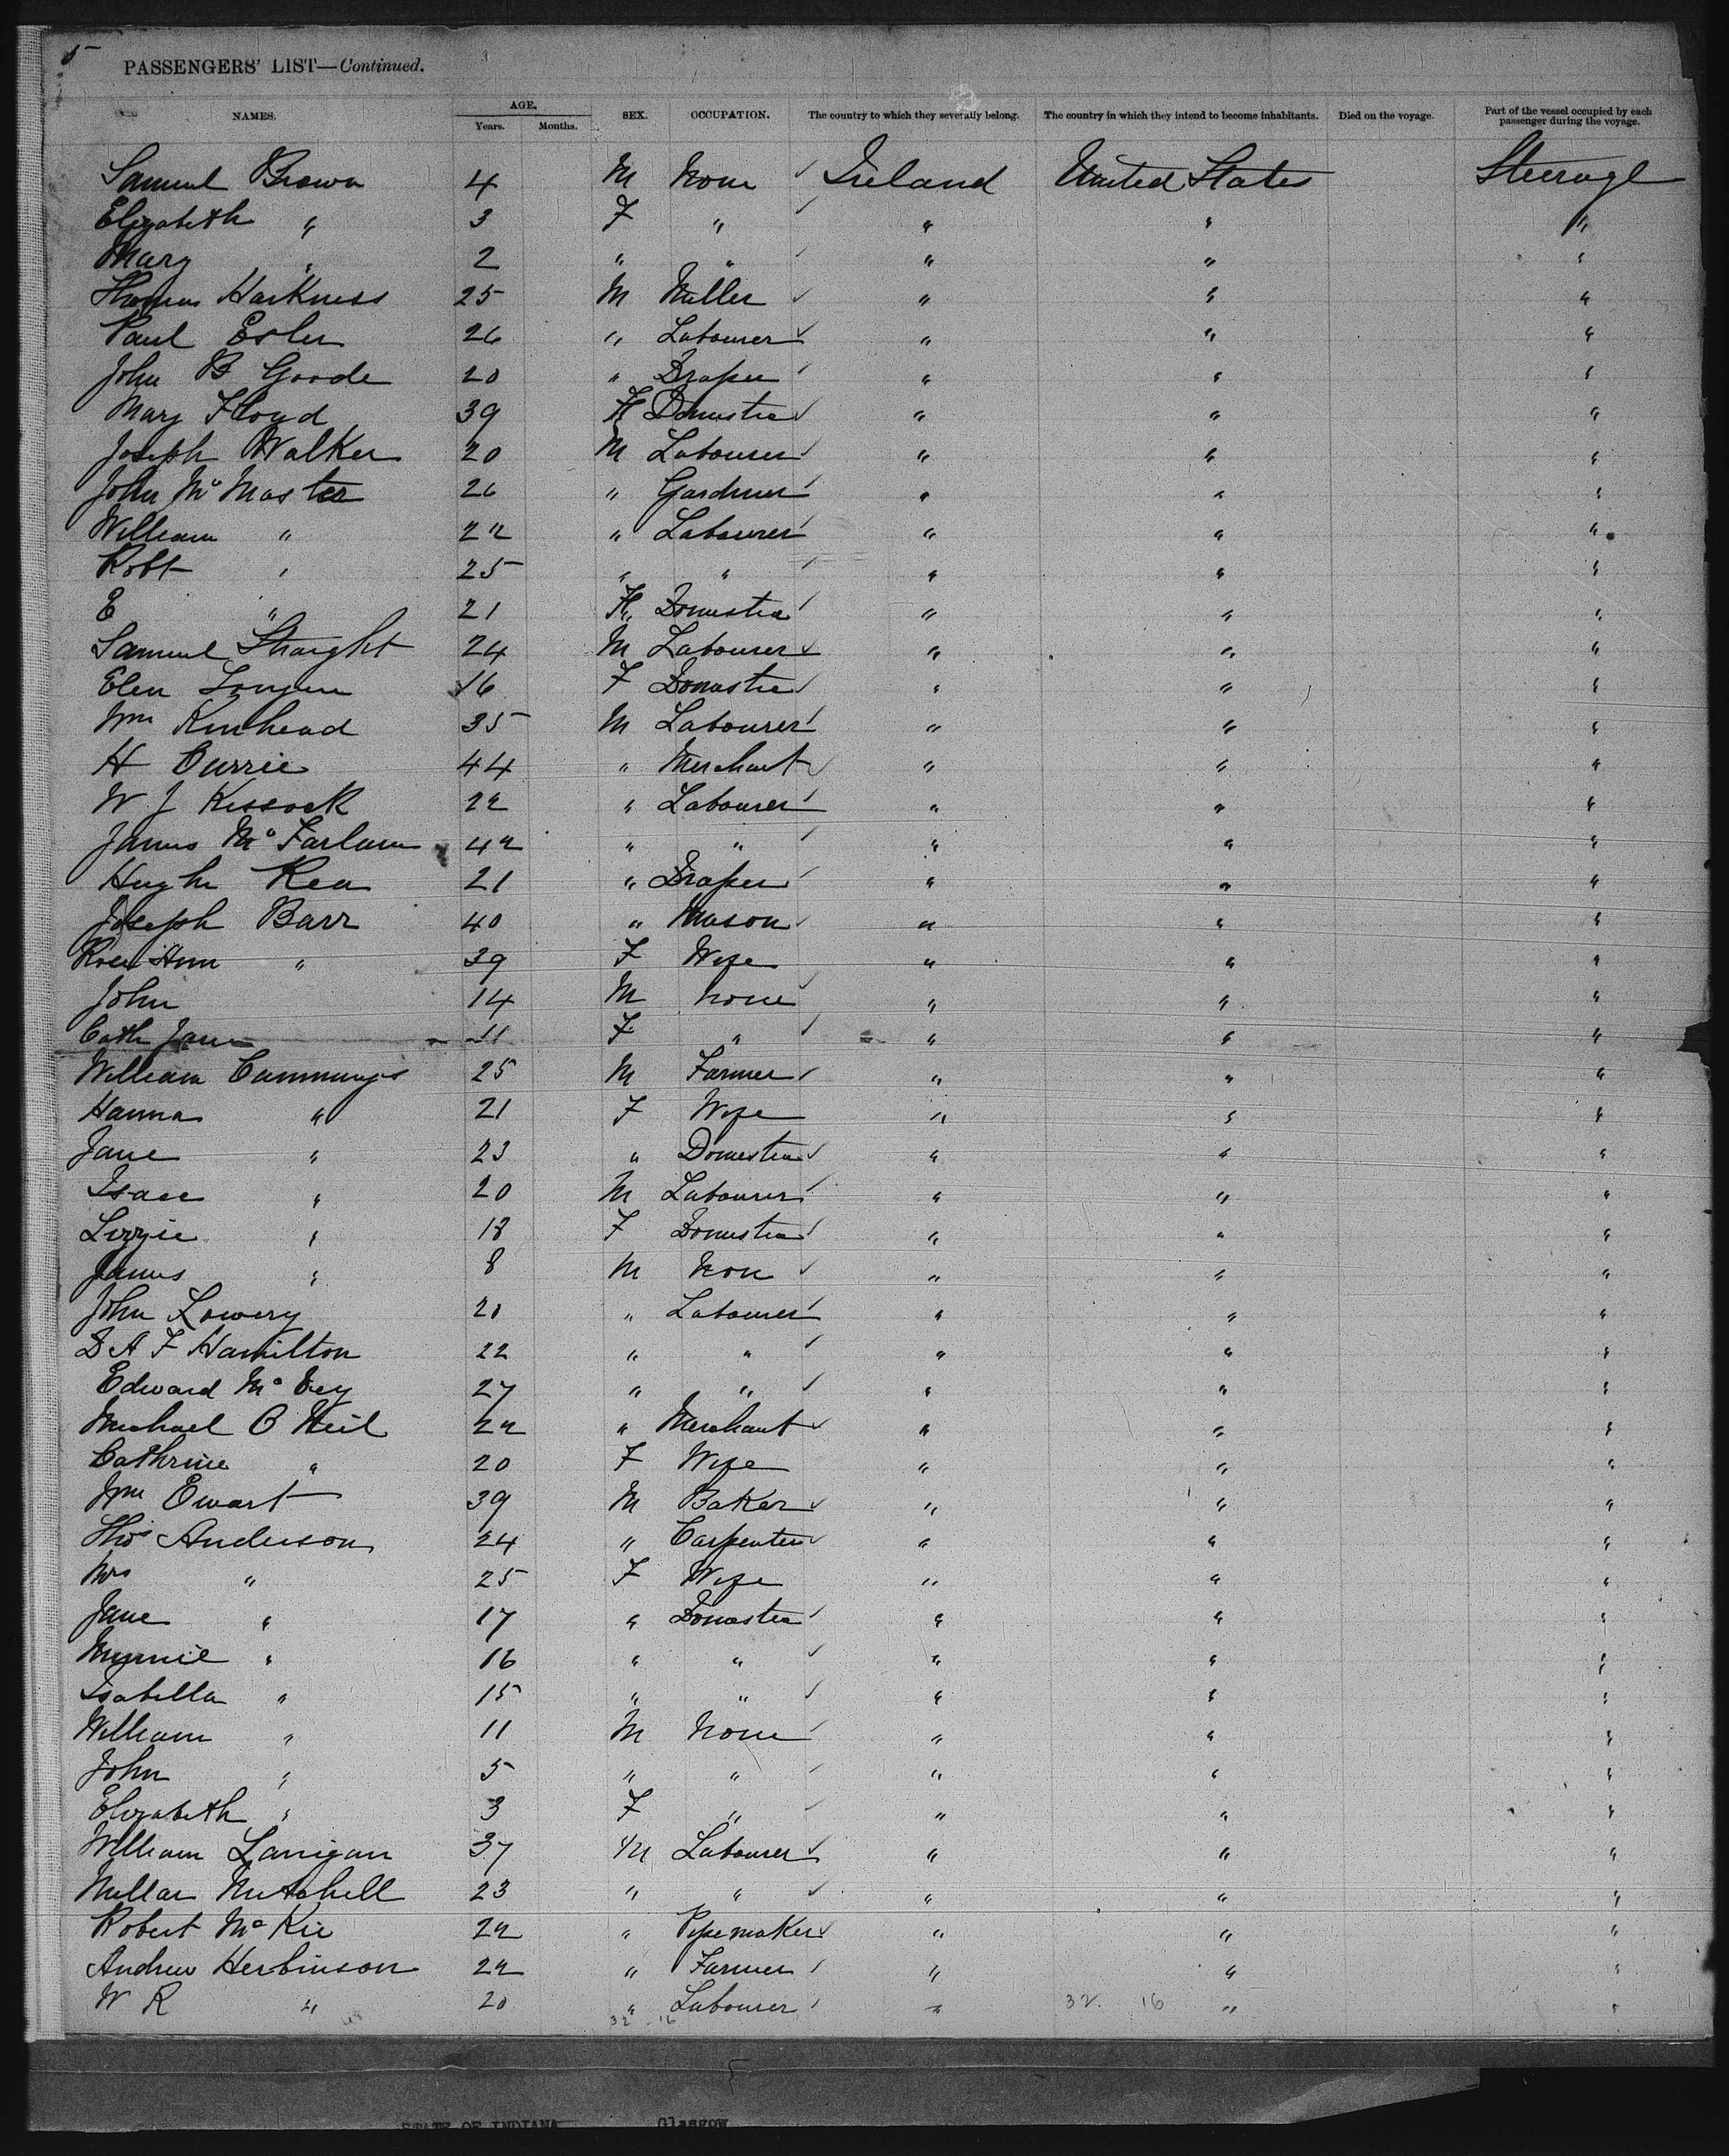 5
PASSENGERS' LIST—Continued.
NAMES. AGE. Years. Months. SEX. OCCUPATION. The country to which they severally belong. The country in which they intend to become inhabitants. Died on the voyage. Part of the vessel occupied by each passenger during the voyage.
Samuel Brown 4 M None Ireland United States Steerage
Elizabeth " 3 F " " " "
Mary " 2 " " " " "
Thomas Harkness 25 M Miller " " "
Paul Esler 26 " Labourer " " "
John B Goode 20 " Draper " " "
Mary Floyd 39 F Domestic " " "
Joseph Walker 20 M Labourer " " "
John Mc Master 26 " Gardner " " "
William " 22 " Labourer " " "
Robt " 25 " " " " "
E " 21 F Domestic " " "
Samuel Straight 24 M Labourer " " "
Elen 16 F Domestic " " "
Wm Kinhead 35 M Labourer " " "
H Currie 44 " Merchant " " "
W J Kissock 22 " Labourer " " "
James Mc Farlane 42 " " " " "
Hugh Rea 21 " Draper " " "
Joseph Barr 40 " Mason " " "
Rose Ann " 39 F Wife " " "
John 14 M None " " "
Cath Jane 11 F " " " "
William Cummings 25 M Farmer " " "
Hanna " 21 F Wife " " "
Jane " 23 " Domestic " " "
Isaac " 20 M Labourer " " "
Lizzie " 18 F Domestic " " "
James " 8 M Non " " "
John Lowery 20 " Labourer " " "
D A F Hamilton 22 " " " " "
Edward Mc Evey 27 " " " " "
Michael O Neil 22 " Merchant " " "
Cathrine " 20 F Wife " " "
Wm Ewart 39 M Baker " " "
Thos Anderson 24 " Carpenter " " "
Mrs " 25 F Wife " " "
Jane " 17 " Domestic " " "
Minnie " 16 " " " " "
Isabella " 15 " " " " "
William " 11 M None " " "
John " 5 " " " " "
Elizabeth " 3 F " " " "
William Lanigan 37 M Labourer " " "
Millar Mitchell 23 " " " " "
Robert Mc Kie 22 " Pipemaker " " "
Andrew Herbinson 22 " Farmer " " "
W R " 20 " Labourer " " "
32 16 32. 16
5
STATE OF INDIANA Glasgow